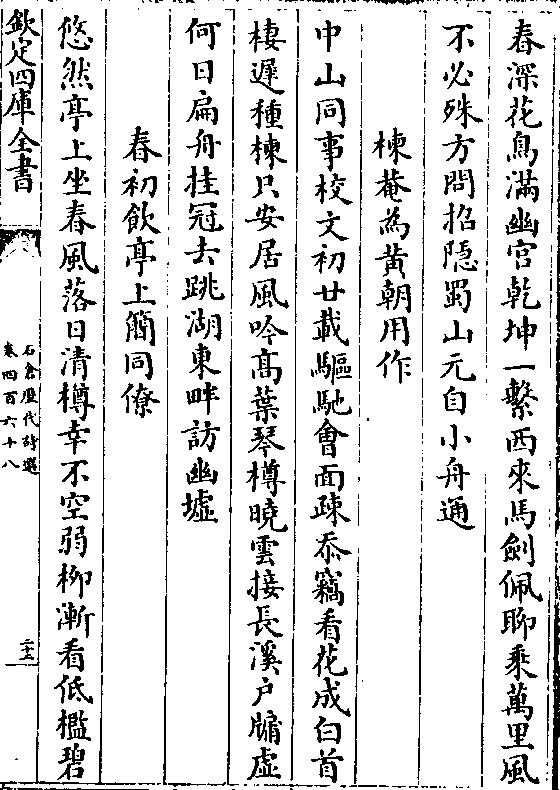 春深花鳥滿幽宫乾坤一繫西來馬劍佩聊乘萬里風
不必殊方問招隠蜀山元自小舟通
楝菴為黄朝用作
中山同事校文初廿載驅馳㑹面疎忝竊看花成白首
棲遲種楝只安居風吟髙葉琴樽曉雲接長溪户牖虚
何日扁舟挂冠去跳湖東畔訪幽墟
春初飲亭上簡同僚
悠然亭上坐春風落日清樽幸不空弱柳漸看低檻碧
欽定四庫全書
石倉歷代詩選
卷四百六十八
二十二